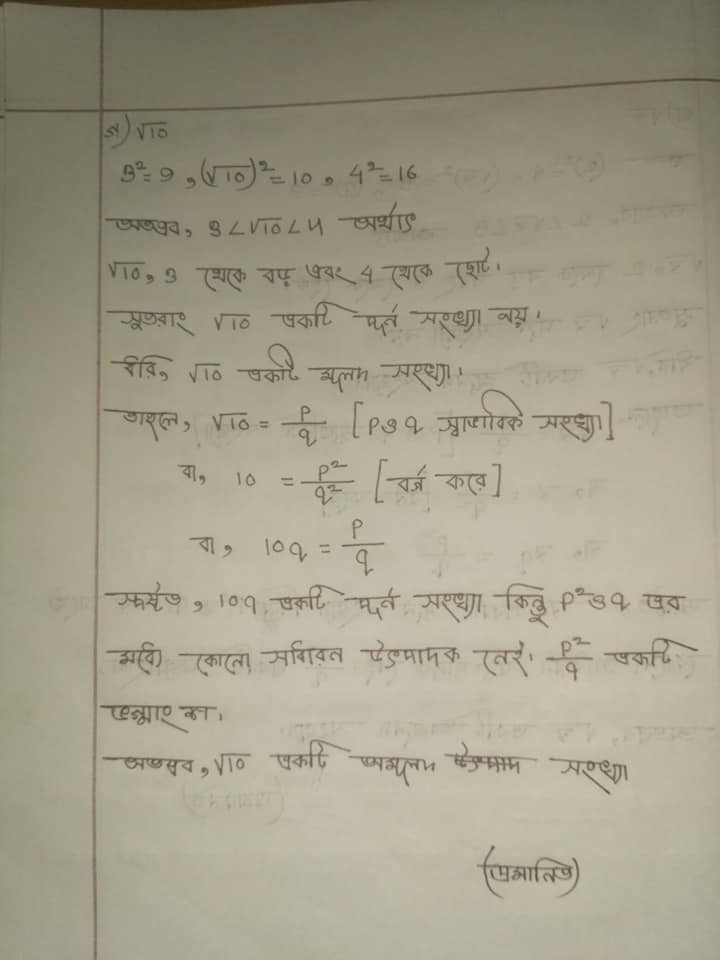 জ) √10
3²=9, (√10)²=10, 4²=16
অতএব, 3<√10<4 অর্থাৎ
√10, 3 থেকে বড় এবং 4 থেকে ছোট।
সুতরাং √10 একটি পূর্ণ সংখ্যা নয়।
ধরি, √10 একটি মূলদ সংখ্যা।
তাহলে, √10 = p/q [p ও q স্বাভাবিক সংখ্যা]
বা, 10 = p²/q² [বর্গ করে]
বা, 10q = p/q
স্পষ্টত, 10q একটি পূর্ণ সংখ্যা কিন্তু p² ও q এর
মধ্যে কোনো সাধারন উৎপাদক নেই। p²/q একটি
ভগ্নাংশ।
অতএব, √10 একটি অমূলদ সংখ্যা
(প্রমানিত)